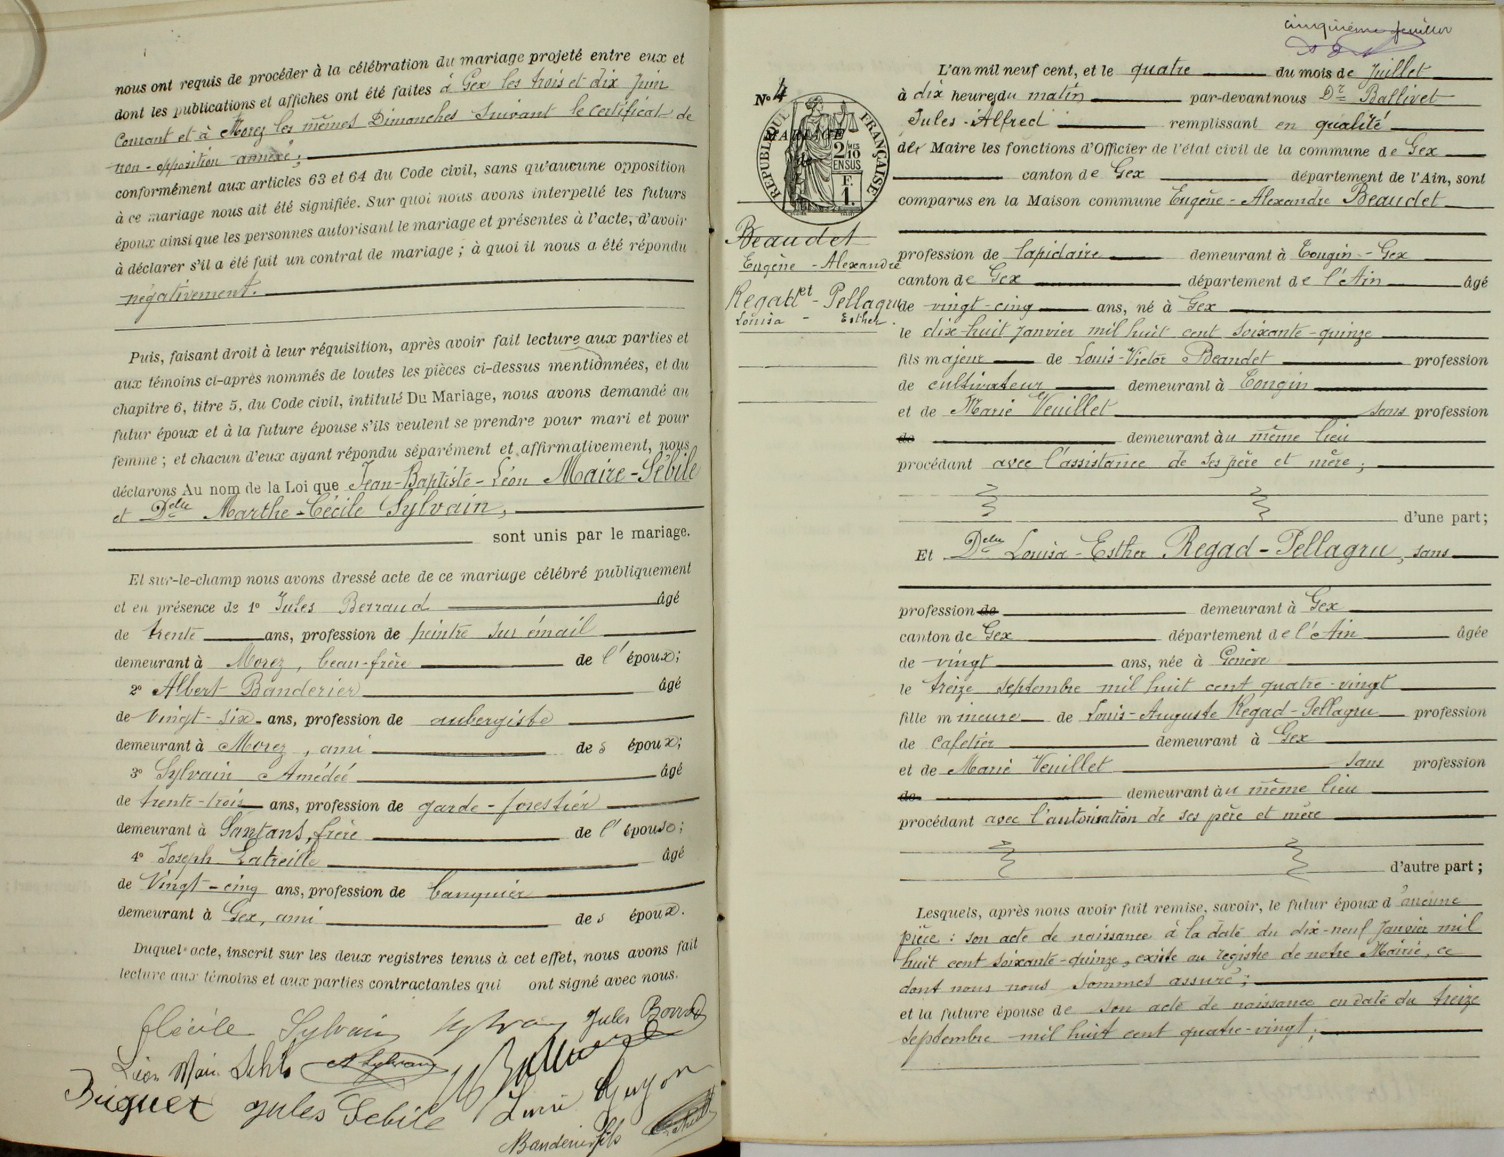 nous ont requis de procéder à la célébration du mariage projeté entre eux et
dont les publications et affiches ont été faites à Gex les trois et dix Juin
Courant et à Morez les mêmes Dimanches suivant le certificat de
non-opposition annexé;
conformément aux articles 63 et 64 du Code civil, sans qu'aucune opposition
à ce mariage nous ait été signifiée. Sur quoi nous avons interpellé les futurs
époux ainsi que les personnes autorisant le mariage et présentes à l'acte, d'avoir
à déclarer s'il a été fait un contrat de mariage ; à quoi il nous a été répondu
négativement.
Puis, faisant droit à leur réquisition, après avoir fait lecture aux parties et
aux témoins ci-après nommés de toutes les pièces ci-dessus mentionnées, et du
chapitre 6, titre 5, du Code civil, intitulé Du Mariage, nous avons demandé au
futur époux et à la future épouse s'ils veulent se prendre pour mari et pour
femme ; et chacun d'eux ayant répondu séparément et affirmativement, nous
déclarons Au nom de la Loi que Jean-Baptiste-Léon Maire-Sébile
et Delle Marthe-Cécile Sylvain,
sont unis par le mariage.
Et sur-le-champ nous avons dressé acte de ce mariage célébré publiquement
et en présence de 1° Jules Berraud âgé
de trente ans, profession de peintre sur émail
demeurant à Morez, beau-frère de l'époux;
2° Albert Banderier âgé
de vingt-six ans, profession de aubergiste
demeurant à Morez, ami des époux;
3° Sylvain Amédée âgé
de trente-trois ans, profession de garde-forestier
demeurant à Santans, frère de l'épouse;
4° Joseph Latreille âgé
de Vingt-cinq ans, profession de banquier
demeurant à Gex, ami des époux.
Duquel acte, inscrit sur les deux registres tenus à cet effet, nous avons fait
lecture aux témoins et aux parties contractantes qui ont signé avec nous.
Cécile Sylvain Sylvain Jules Borrod
Léon Mair Sebile A Sylvain
Biguet Jules Sebile Guyon
Banderier fils
cinquième feuillet
N° 4
MARIAGE
de
RÉPUBLIQUE FRANÇAISE
2/10 EN SUS
F. 1.
Beaudet
Eugène-Alexandre
et
Regad-Pellagru
Louisa-Esther
L'an mil neuf cent, et le quatre du mois de Juillet
à dix heures du matin par-devant nous Dr Ballivet
Jules-Alfred remplissant en qualité
de Maire les fonctions d'Officier de l'état civil de la commune de Gex
canton de Gex département de l'Ain, sont
comparus en la Maison commune Eugène-Alexandre Beaudet
profession de lapidaire demeurant à Tougin-Gex
canton de Gex département de l'Ain âgé
de vingt-cinq ans, né à Gex
le dix-huit Janvier mil huit cent soixante-quinze
fils majeur de Louis-Victor Beaudet profession
de cultivateur demeurant à Tougin
et de Marie Veuillet sans profession
de demeurant au même lieu
procédant avec l'assistance de ses père et mère;
d'une part;
Et Delle Louisa-Esther Regad-Pellagru, sans
profession de demeurant à Gex
canton de Gex département de l'Ain âgée
de vingt ans, née à Genève
le treize septembre mil huit cent quatre-vingt
fille mineure de Louis-Auguste Regad-Pellagru profession
de cafetier demeurant à Gex
et de Marie Veuillet sans profession
de demeurant au même lieu
procédant avec l'autorisation de ses père et mère
d'autre part;
Lesquels, après nous avoir fait remise, savoir, le futur époux d'aucune
pièce : son acte de naissance à la date du dix-neuf Janvier mil
huit cent soixante-quinze, existe au registre de notre Mairie, ce
dont nous nous sommes assuré;
et la future épouse de son acte de naissance en date du treize
septembre mil huit cent quatre-vingt;